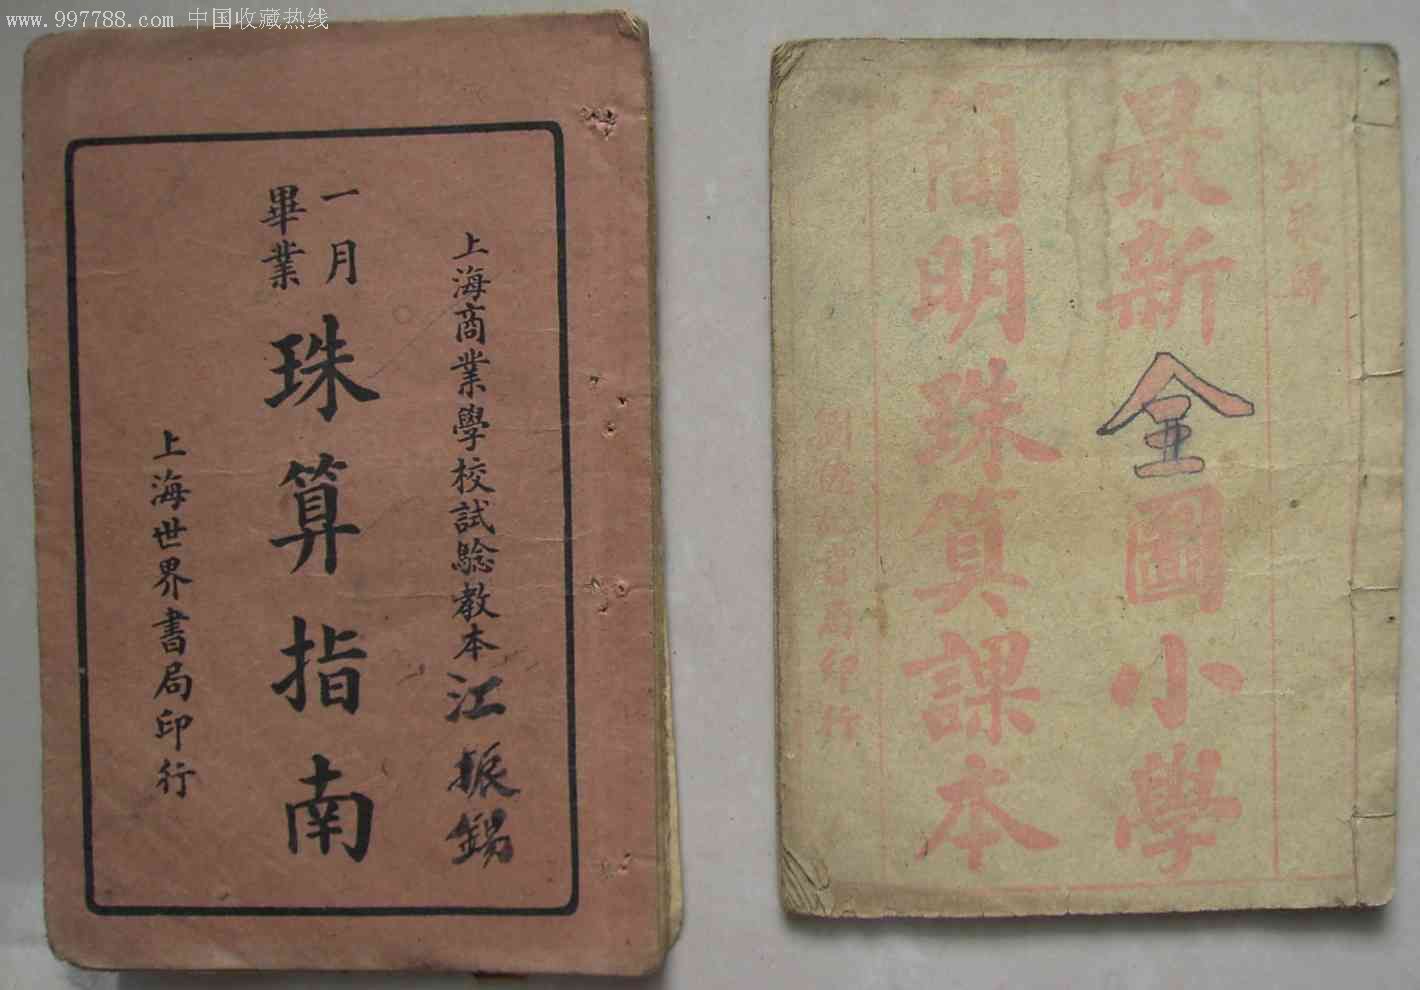 www.997788.com 中国收藏热线
上海商業學校試驗教本
江振錫
一月
畢業
珠算指南
上海世界書局印行
最新全圖小學
簡明珠算課本
書局印行